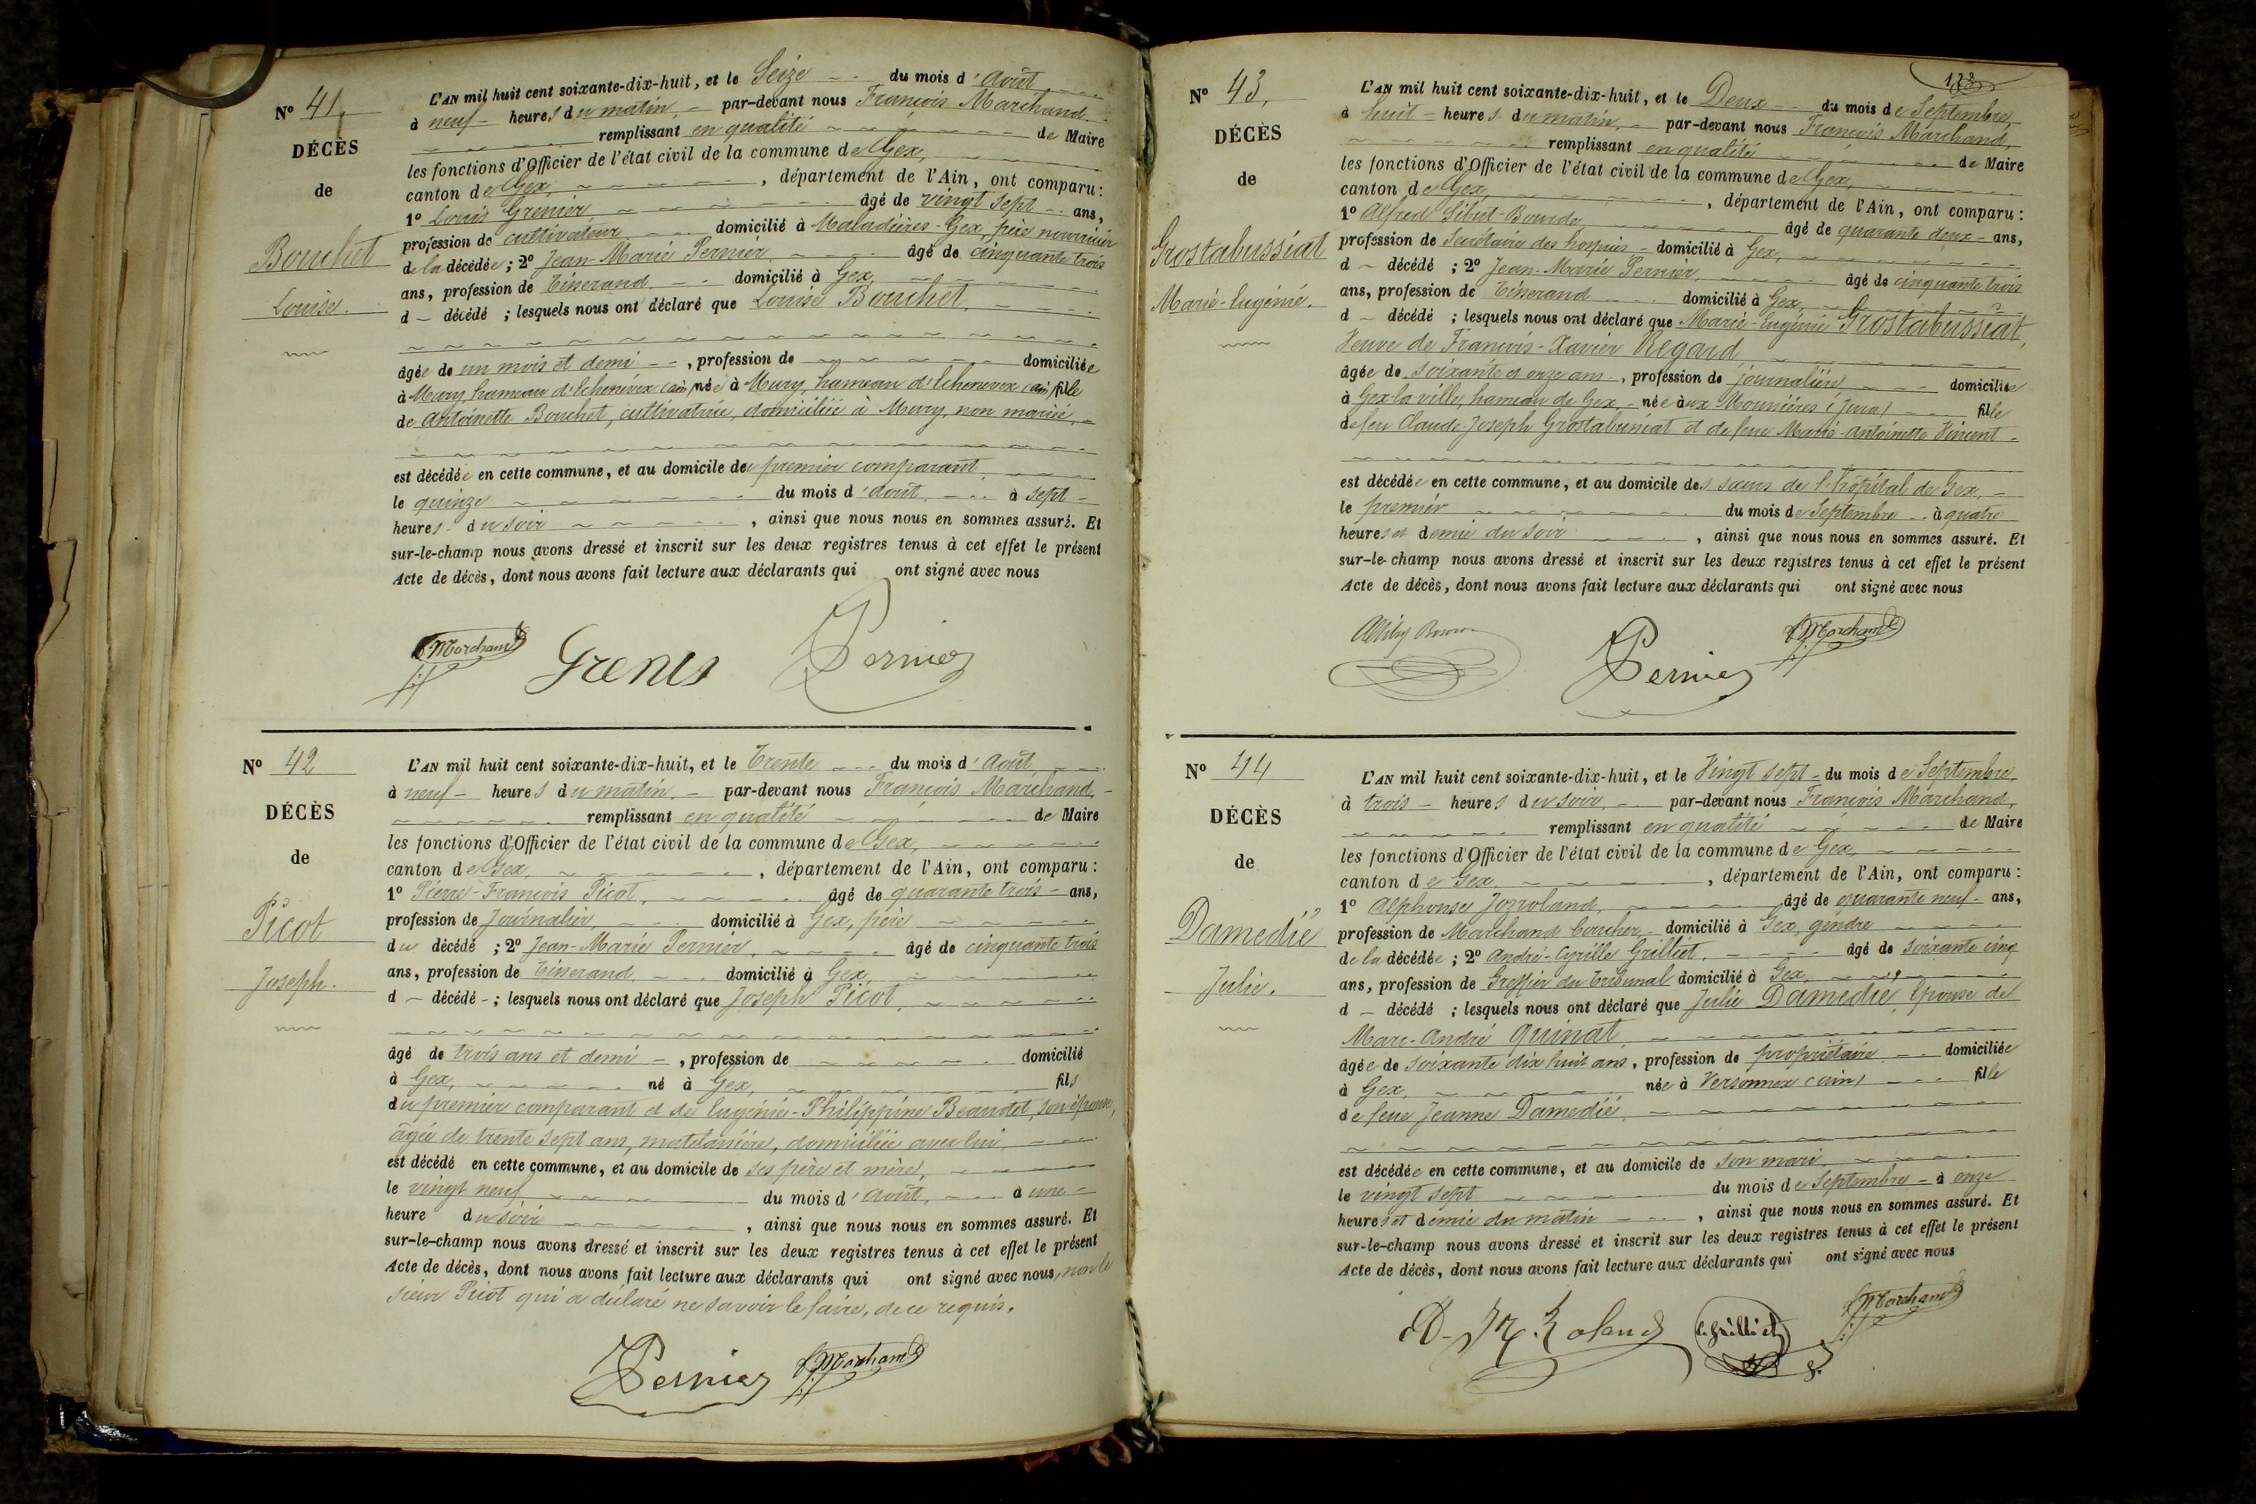 Nº 41.
DÉCÈS
de
Bouchet
Louise.
L'AN mil huit cent soixante-dix-huit, et le Seize du mois d'Août
à neuf heures du matin, par-devant nous François Marchand,
remplissant en qualité de Maire
les fonctions d'Officier de l'état civil de la commune de Gex,
canton de Gex, département de l'Ain, ont comparu :
1º Louis Grenier, âgé de vingt sept ans,
profession de cultivateur, domicilié à Maladières-Gex, père nourricier
de la décédée ; 2º Jean-Marie Pernier, âgé de cinquante trois
ans, profession de Tisserand, domicilié à Gex,
d décédé ; lesquels nous ont déclaré que Louise Bouchet,
âgée de un mois et demi, profession de domiciliée
à Mury, hameau d'Echenevex (ain) née à Mury, hameau d'Echenevex (ain) fille
de Antoinette Bouchet, cultivatrice, domiciliée à Mury, non mariée,
est décédée en cette commune, et au domicile de premier comparant
le quinze du mois d'août, à sept
heures du soir, ainsi que nous nous en sommes assuré. Et
sur-le-champ nous avons dressé et inscrit sur les deux registres tenus à cet effet le présent
Acte de décès, dont nous avons fait lecture aux déclarants qui ont signé avec nous
F Marchand Pernier
Nº 42
DÉCÈS
de
Picot
Joseph.
L'AN mil huit cent soixante-dix-huit, et le Trente du mois d'Août
à neuf heures du matin, par-devant nous François Marchand,
remplissant en qualité de Maire
les fonctions d'Officier de l'état civil de la commune de Gex,
canton de Gex, département de l'Ain, ont comparu :
1º Pierre-François Picot, âgé de quarante trois ans,
profession de Journalier, domicilié à Gex, père
du décédé ; 2º Jean-Marie Pernier, âgé de cinquante trois
ans, profession de Tisserand, domicilié à Gex,
d décédé ; lesquels nous ont déclaré que Joseph Picot,
âgé de trois ans et demi, profession de domicilié
à Gex, né à Gex, fils
du premier comparant et de Eugénie-Philippine Beaudet, son épouse,
âgée de trente sept ans, matelassière, domiciliée avec lui
est décédé en cette commune, et au domicile de ses père et mère,
le vingt neuf du mois d'août, à une
heure du soir, ainsi que nous nous en sommes assuré. Et
sur-le-champ nous avons dressé et inscrit sur les deux registres tenus à cet effet le présent
Acte de décès, dont nous avons fait lecture aux déclarants qui ont signé avec nous, non le
sieur Picot qui a déclaré ne savoir le faire, de ce requis.
Pernier F Marchand
Nº 43.
DÉCÈS
de
Grostabussiat
Marie-Eugénie.
L'AN mil huit cent soixante-dix-huit, et le Deux du mois de Septembre,
à huit heures du matin, par-devant nous François Marchand,
remplissant en qualité de Maire
les fonctions d'Officier de l'état civil de la commune de Gex,
canton de Gex, département de l'Ain, ont comparu :
1º Alfred âgé de quarante deux ans,
profession de Secrétaire des hospices domicilié à Gex,
d décédé ; 2º Jean-Marie Pernier, âgé de cinquante trois
ans, profession de Tisserand domicilié à Gex,
d décédé ; lesquels nous ont déclaré que Marie-Eugénie Grostabussiat,
Veuve de François-Xavier Regard
âgée de soixante et onze ans, profession de journalière domiciliée
à Gex-la-ville, hameau de Gex née aux Mounières (Jura) fille
de feu Claude-Joseph Grostabussiat et de feue Marie-Antoinette Vincent
est décédée en cette commune, et au domicile des sœurs de l'hôpital de Gex,
le premier du mois de Septembre à quatre
heures et demie du soir, ainsi que nous nous en sommes assuré. Et
sur-le-champ nous avons dressé et inscrit sur les deux registres tenus à cet effet le présent
Acte de décès, dont nous avons fait lecture aux déclarants qui ont signé avec nous
Pernier F Marchand
Nº 44
DÉCÈS
de
Damedié
Julie.
L'AN mil huit cent soixante-dix-huit, et le Vingt sept du mois de Septembre,
à trois heures du soir, par-devant nous François Marchand,
remplissant en qualité de Maire
les fonctions d'Officier de l'état civil de la commune de Gex,
canton de Gex, département de l'Ain, ont comparu :
1º Alphonse Jozroland, âgé de quarante neuf ans,
profession de Marchand boucher, domicilié à Gex, gendre
de la décédée ; 2º André-Cyrille Grilliet, âgé de soixante cinq
ans, profession de Greffier du Tribunal domicilié à Gex,
d décédé ; lesquels nous ont déclaré que Julie Damedié, épouse de
Marc-André Quinat
âgée de soixante dix huit ans, profession de propriétaire domiciliée
à Gex, née à Versonnex (ain) fille
de feue Jeanne Damedié,
est décédée en cette commune, et au domicile de son mari
le vingt sept du mois de Septembre à onze
heures et demie du matin, ainsi que nous nous en sommes assuré. Et
sur-le-champ nous avons dressé et inscrit sur les deux registres tenus à cet effet le présent
Acte de décès, dont nous avons fait lecture aux déclarants qui ont signé avec nous
C. Grilliet F Marchand